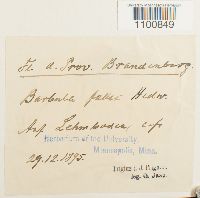 1100849
Fl. d. Prov. Brandenburg.
Barbula fallax Hedw.
Auf Lehmboden c. fr.
Herbarium of the University
Minneapolis, Minn.
29.12.1895.